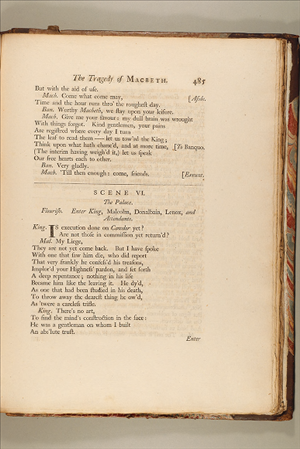 The Tragedy of MACBETH. 485
But with the aid of use.
Macb. Come what come may, [Aside.
Time and the hour runs thro' the roughest day.
Ban. Worthy Macbeth, we stay upon your leisure.
Macb. Give me your favour: my dull brain was wrought
With things forgot. Kind gentlemen, your pains
Are registred where every day I turn
The leaf to read them —— let us tow'rd the King;
Think upon what hath chanc'd, and at more time, [To Banquo.
(The interim having weigh'd it,) let us speak
Our free hearts each to other.
Ban. Very gladly.
Macb. 'Till then enough: come, friends. [Exeunt.
SCENE VI.
The Palace.
Flourish. Enter King, Malcolm, Donalbain, Lenox, and
Attendants.
King. IS execution done on Cawdor yet?
Are not those in commission yet return'd?
Mal. My Liege,
They are not yet come back. But I have spoke
With one that saw him die, who did report
That very frankly he confess'd his treasons,
Implor'd your Highness' pardon, and set forth
A deep repentance; nothing in his life
Became him like the leaving it. He dy'd,
As one that had been studied in his death,
To throw away the dearest thing he ow'd,
As 'twere a careless trifle.
King. There's no art,
To find the mind's construction in the face:
He was a gentleman on whom I built
An abs'lute trust.
Enter